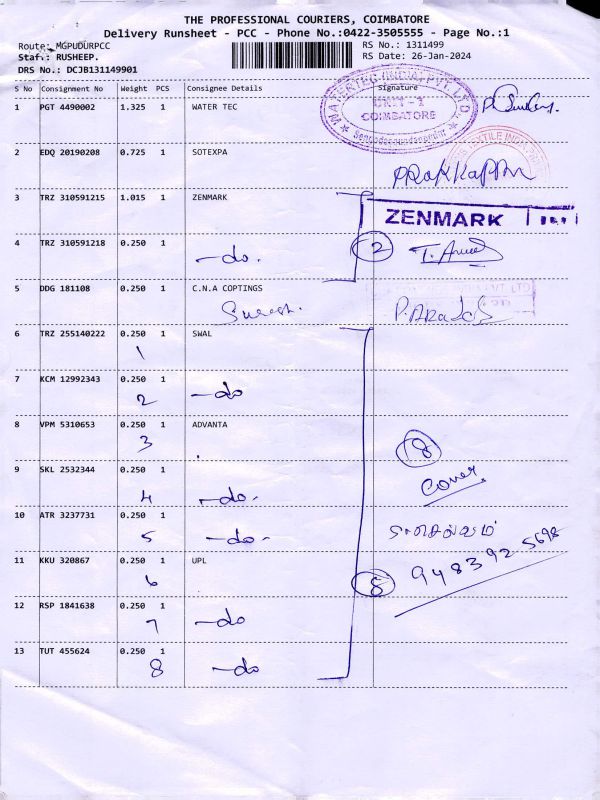 THE PROFESSIONAL COURIERS, COIMBATORE
Delivery Runsheet - PCC - Phone No.:0422-3505555 - Page No.:1
Route: MGPUDURPCC RS No.: 1311499
Staf.: RUSHEEP. RS Date: 26-Jan-2024
DRS No.: DCJB131149901
S No Consignment No Weight PCS Consignee Details Signature
1 PGT 4490002 1.325 1 WATER TEC
WATERTEC (INDIA) PVT LTD.
UNIT - 1
COIMBATORE
2 EDQ 20190208 0.725 1 SOTEXPA
3 TRZ 310591215 1.015 1 ZENMARK
ZENMARK
4 TRZ 310591218 0.250 1
-do. 2
5 DDG 181108 0.250 1 C.N.A COPTINGS
Suresh.
6 TRZ 255140222 0.250 1 SWAL
1
7 KCM 12992343 0.250 1 -do
2
8 VPM 5310653 0.250 1 ADVANTA
3 8
9 SKL 2532344 0.250 1
4 -do- cover
10 ATR 3237731 0.250 1
5 -do-
11 KKU 320867 0.250 1 UPL
6 8 948392 5698
12 RSP 1841638 0.250 1
7 -do
13 TUT 455624 0.250 1
8 -do